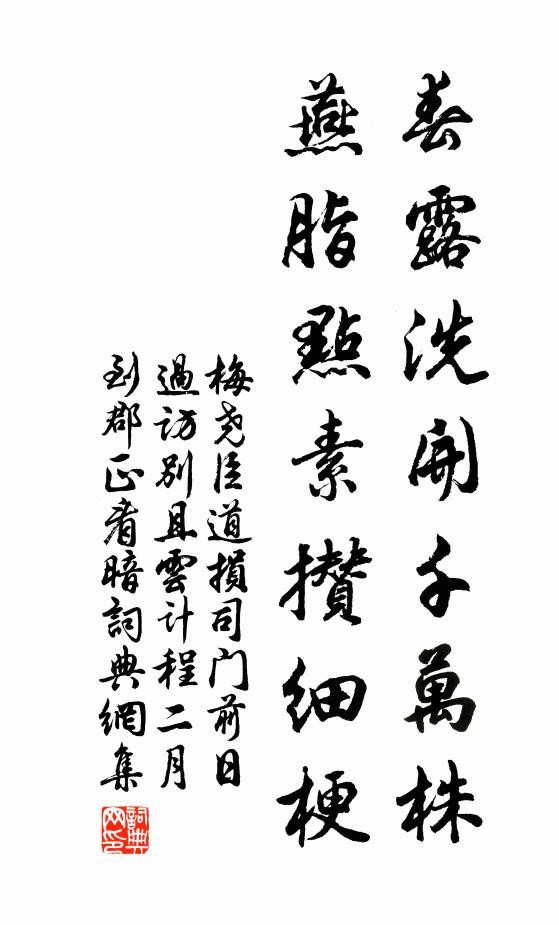 春露洗開千萬株
燕脂點素攢細梗
梅尧臣道損司门前日
過訪別且雲計程二月
到郡正看暗詞典網集
詞典网印